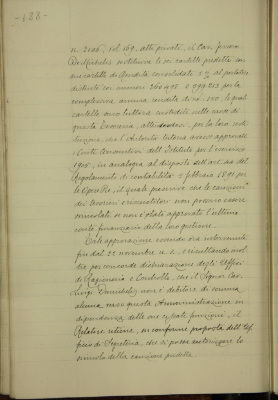 - 188 -
n. 2106, vol. 169, atti privati, il Cav. Luigi
De Michelis costituiva le su cartelle predette
un certificato di Rendita consolidato 5 % al portatore
distinto coi numeri
complessiva annua rendita di £ 150, le quali
cartelle sono tuttora custodite nella cassa di
questa Economia,
che l'Autorità tutoria avesse approvati
i Conti Consuntivi dell'Istituto per l'esercizio
1905, in analogia al disposto dell'art.
Regolamento di contabilità 5 febbraio 1891 per
le Opere Pie, il quale prescrive che le cauzioni
dei tesorieri e ricevitori non possono essere
svincolate se non è stato approvato l'ultimo
conto finanziario della loro gestione.
Tale approvazione essendo ora intervenuta
fin dal 22 novembre u. s. e risultando inol-
tre per concorde dichiarazione degli Uffizi
di Ragioneria e Controllo, che il Signor Cav.
Luigi non è debitore di somma
alcuna verso questa Amministrazione in
dipendenza delle sue cessate funzioni, il
Relatore ritiene, su conforme proposta dell'Uf-
fizio di Segreteria, che si possa autorizzare lo
svincolo della cauzione predetta.